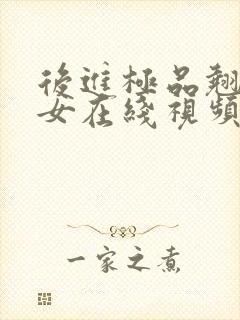 後進極品翹
女在綫視頻
一家之煮